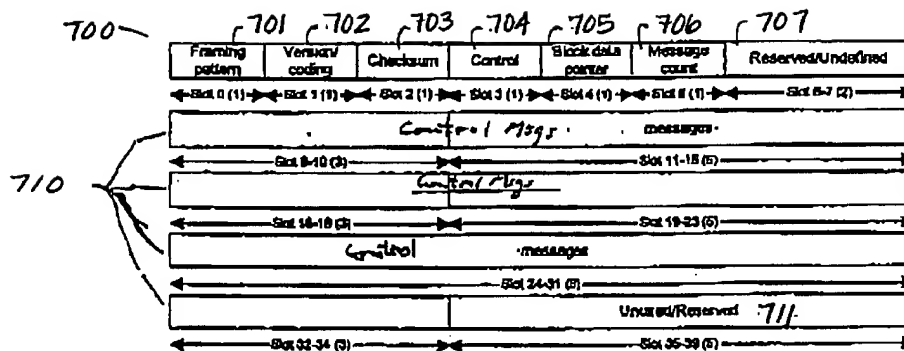 700 701 702 703 704 705 706 707
Framing pattern Version/ coding Checksum Control Block data pointer Message count Reserved/Undefined
Slot 0 (1) Slot 1 (1) Slot 2 (1) Slot 3 (1) Slot 4 (1) Slot 5 (1) Slot 6-7 (2)
Control Msgs messages
Slot 8-10 (3) Slot 11-15 (5)
710 Control Msgs
Slot 16-18 (3) Slot 19-23 (5)
Control messages
Slot 24-31 (8)
Unused/Reserved 711
Slot 32-34 (3) Slot 35-39 (5)